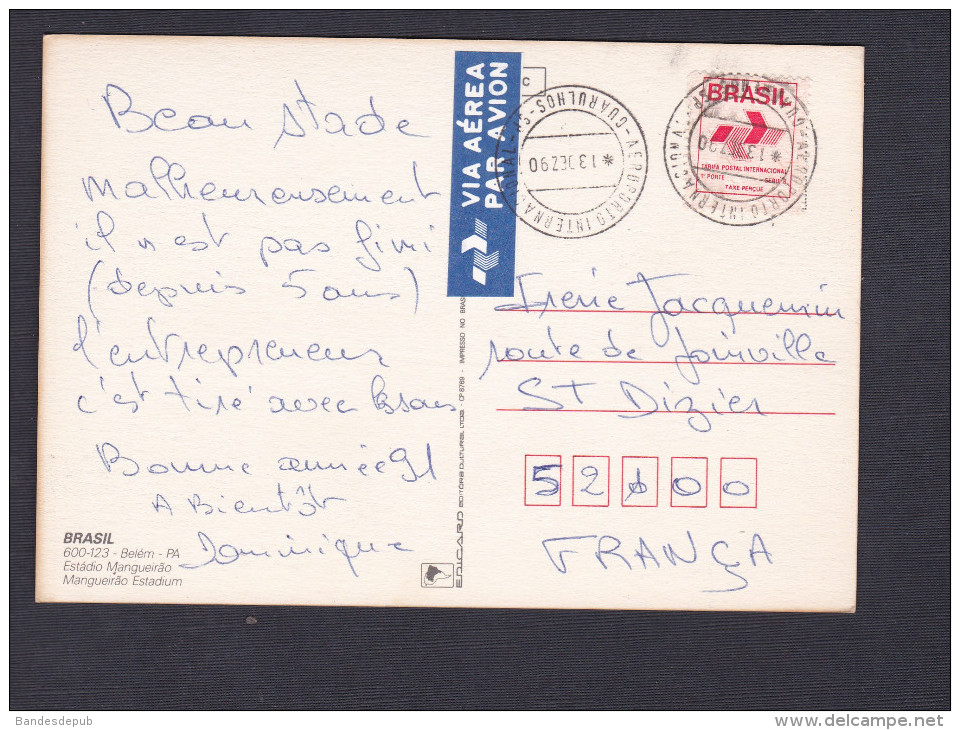 Beau stade
malheureusement
il n'est pas fini
(depuis 5 ans)
l'entrepreneur
c'est tiré avec
Bonne année 91
A Bientôt
Dominique
BRASIL
600-123 - Belém - PA
Estádio Mangueirão
Mangueirão Estadium
VIA AÉREA
PAR AVION
C
AEROPORTO INTERNACIONAL - GUARULHOS-SP
* 13 DEZ 90
BRASIL
TARIFA POSTAL INTERNACIONAL
1º PORTE SÉRIE A
TAXE PERÇUE
* 13 DEZ 90
EDICARD EDITORA CULTURAL LTDA. - CP 8769 - IMPRESSO NO BRASIL
Irène Jacquemin
route de Joinville
St Dizier
52100
FRANÇA
Bandesdepub
www.delcampe.net